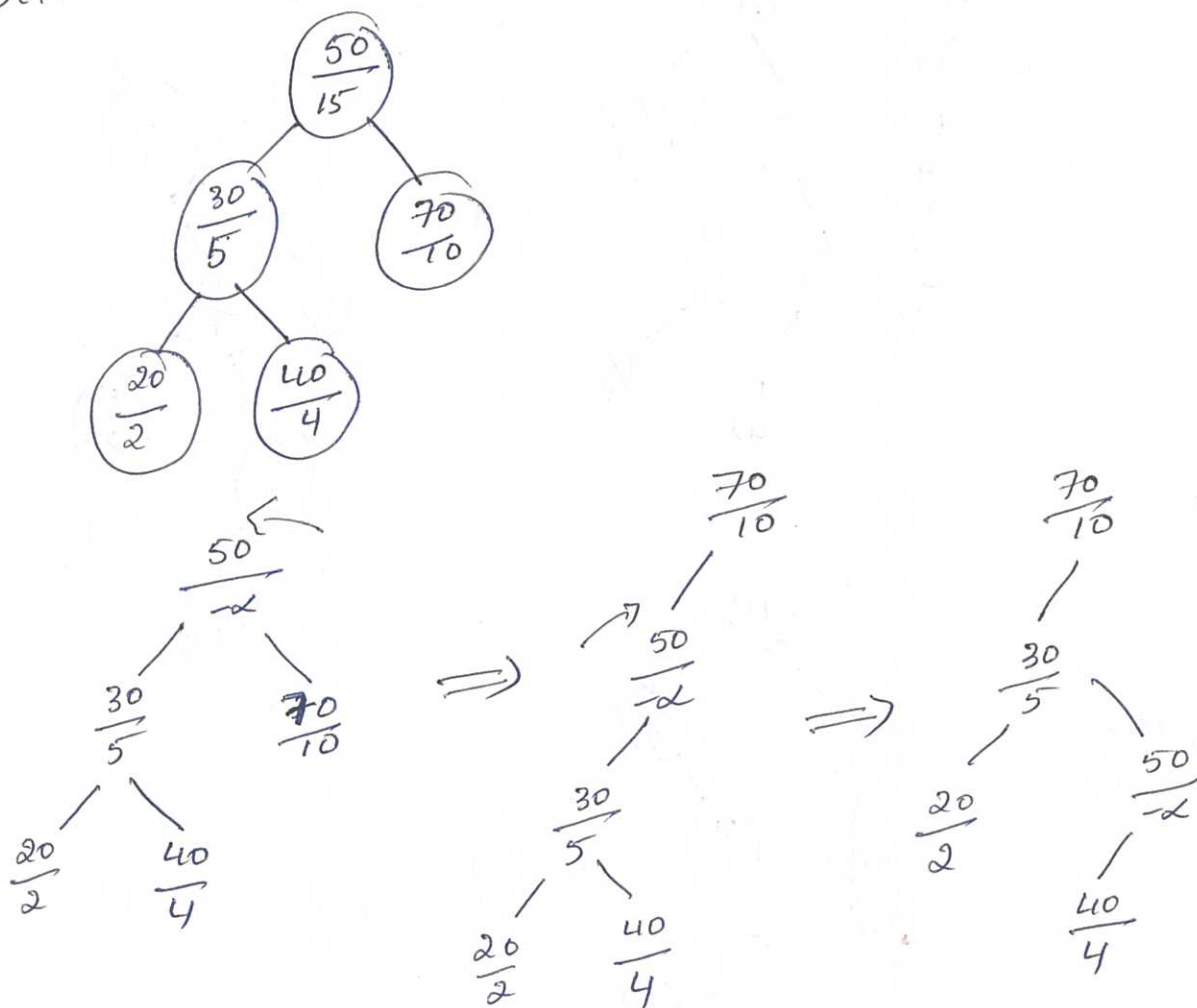 50
15
30
5
70
10
20
2
40
4
50
-α
30
5
70
10
20
2
40
4
⇒
70
10
50
-α
30
5
20
2
40
4
⇒
70
10
30
5
20
2
50
-α
40
4